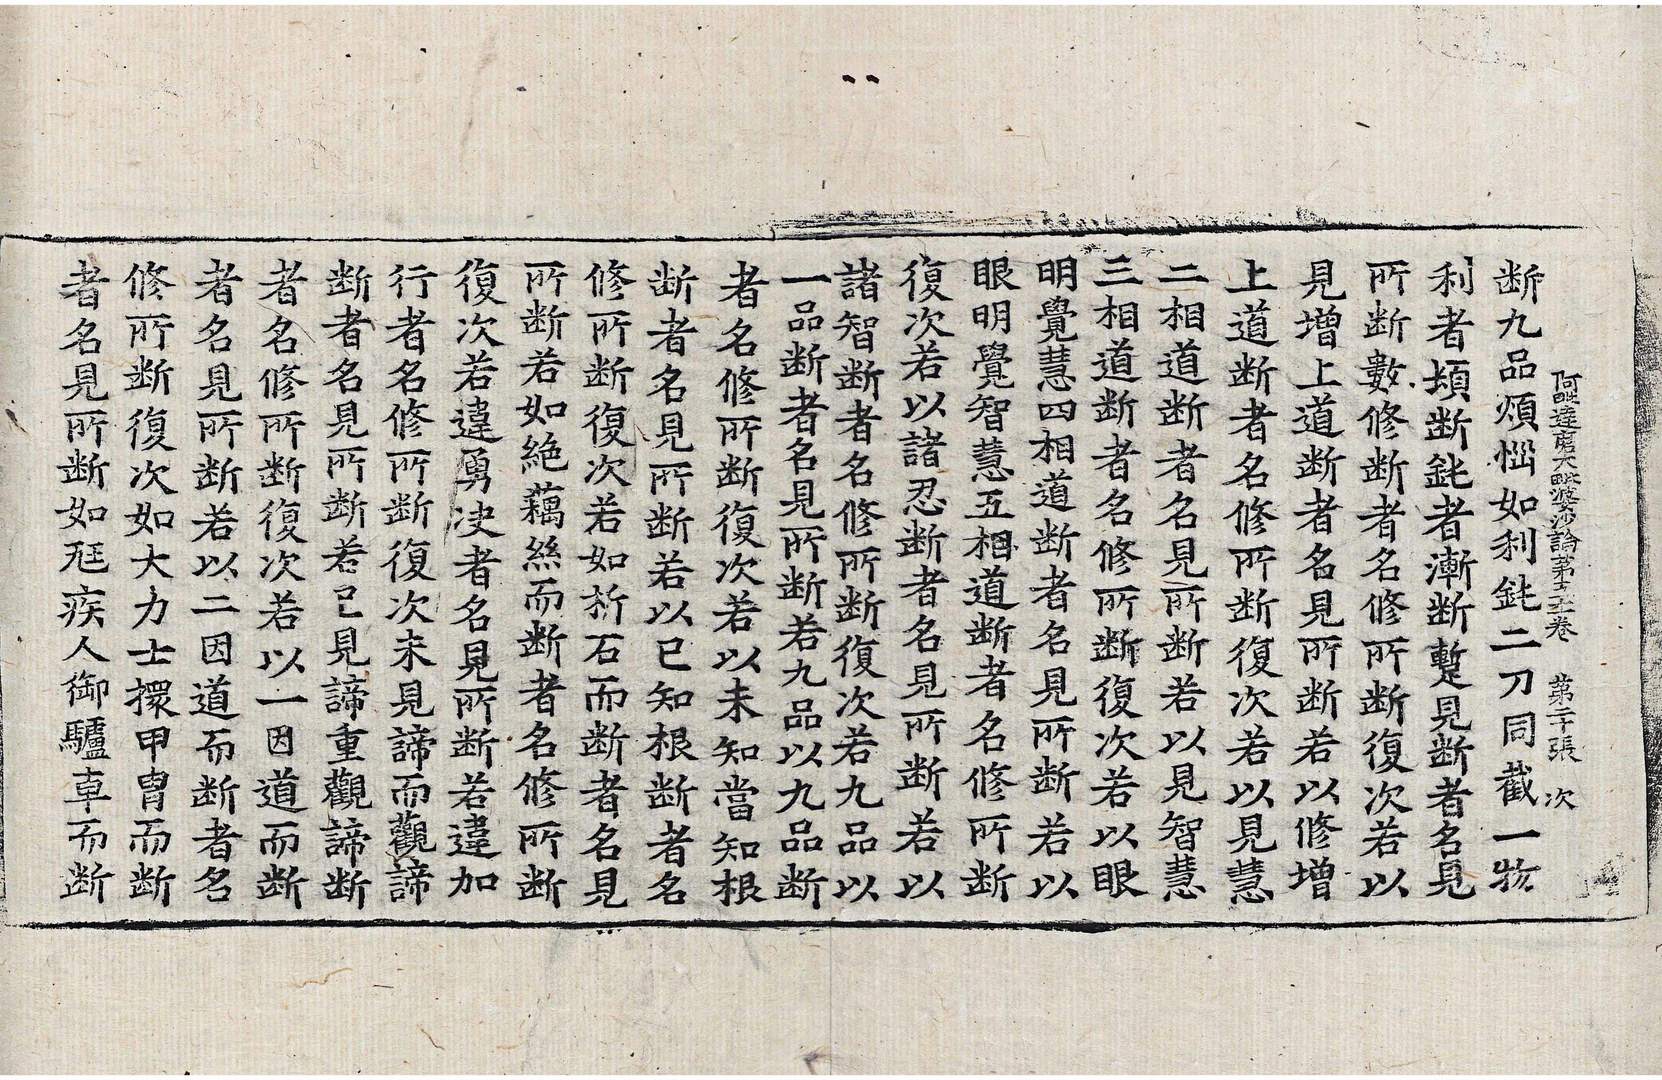 阿毗達磨大毗婆沙論第五十一卷 第二十張 次
断九品煩惱如利鈍二刀同截一物
利者頓断鈍者漸断蹔見断者名見
所断數修断者名修所断復次若以
見增上道断者名見所断若以修增
上道断者名修所断復次若以見慧
二相道断者名見所断若以見智慧
三相道断者名修所断復次若以眼
明覺慧四相道断者名見所断若以
眼明覺智慧五相道断者名修所断
復次若以諸忍断者名見所断若以
諸智断者名修所断復次若九品以
一品断者名見所断若九品以九品断
者名修所断復次若以未知當知根
断者名見所断若以已知根断者名
修所断復次若如析石而断者名見
所断若如絶藕絲而断者名修所断
復次若違勇决者名見所断若違加
行者名修所断復次未見諦而觀諦
断者名見所断若已見諦重觀諦断
者名修所断復次若以一因道而断
者名見所断若以二因道而断者名
修所断復次如大力士擐甲胄而断
者名見所断如尫疾人御驢車而断